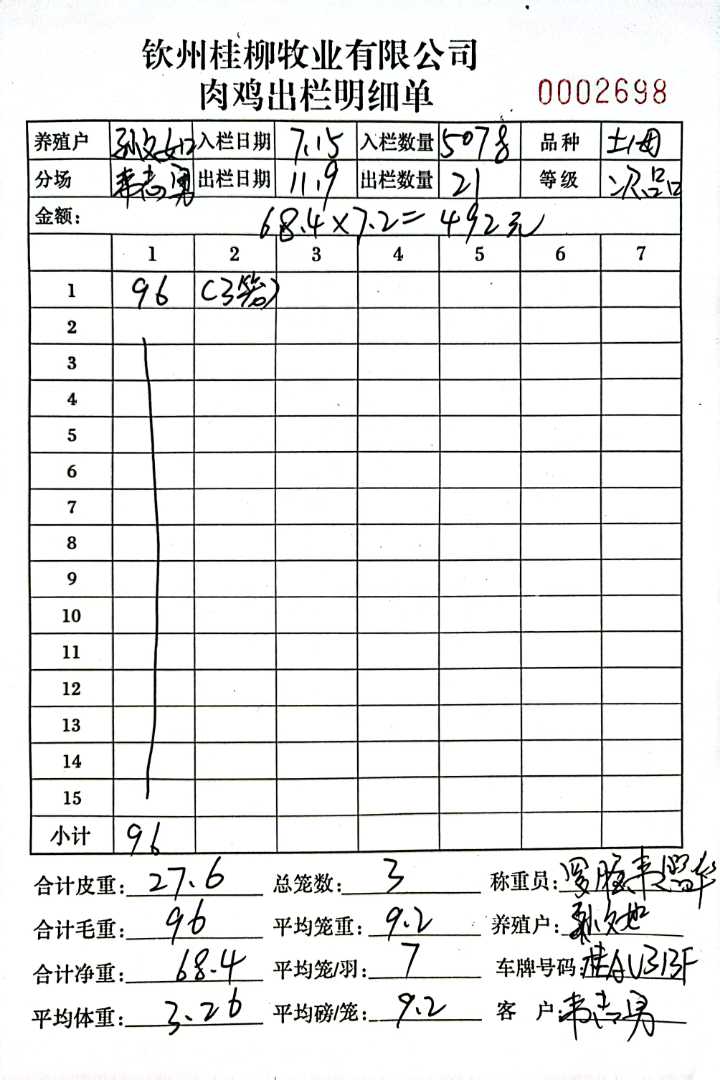 钦州桂柳牧业有限公司
肉鸡出栏明细单 0002698
养殖户 入栏日期 7.15 入栏数量 5078 品种 土母
分场 韦志勇 出栏日期 11.9 出栏数量 21 等级 次品
金额: 68.4×7.2=492元
1 2 3 4 5 6 7
1 96 (3笼)
2
3
4
5
6
7
8
9
10
11
12
13
14
15
小计 96
合计皮重: 27.6 总笼数: 3 称重员:
合计毛重: 96 平均笼重: 9.2 养殖户:
合计净重: 68.4 平均笼/羽: 7 车牌号码: 桂AU313F
平均体重: 3.26 平均磅/笼: 9.2 客户: 韦志勇